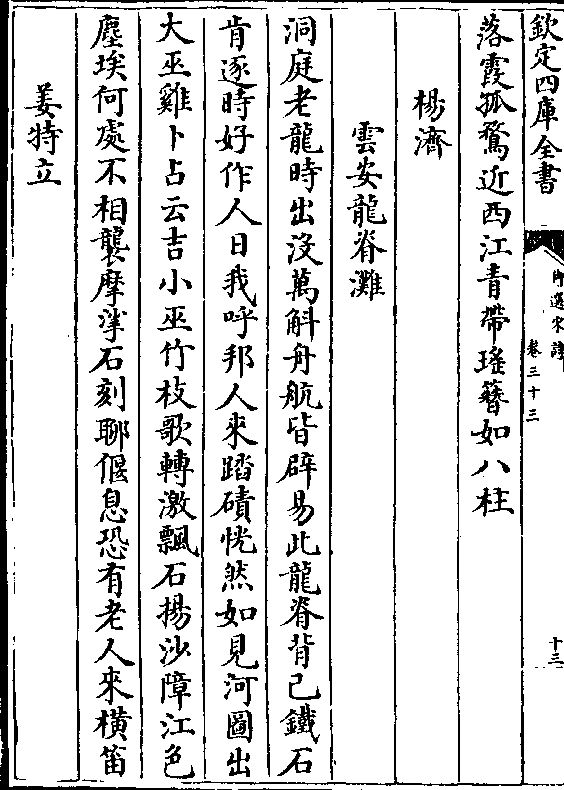 欽定四庫全書
御選宋詩
卷三十三
十三
落霞孤鶩近西江青帶瑤簪如八柱
楊濟
雲安龍脊灘
洞庭老龍時出没萬斛舟航皆辟易此龍脊背已鐵石
肯逐時好作人日我呼邦人來踏磧恍然如見河圖出
大巫雞卜占云吉小巫竹枝歌轉激飄石揚沙障江色
塵埃何處不相襲摩挲石刻聊偃息恐有老人來橫笛
姜特立